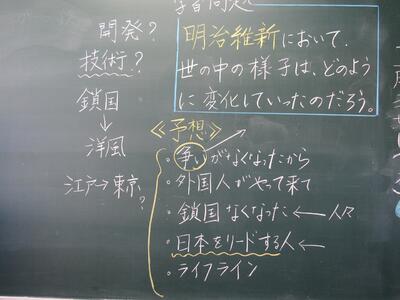 学習問題
明治維新において、
世の中の様子は、どのよう
に変化していったのだろう。
開発?
技術?
鎖国
↓
洋風
江戸→東京
?
≪予想≫
・争いがなくなったから
・外国人がやって来て
・鎖国なくなった←人々
・日本をリードする人←
・ライフライン